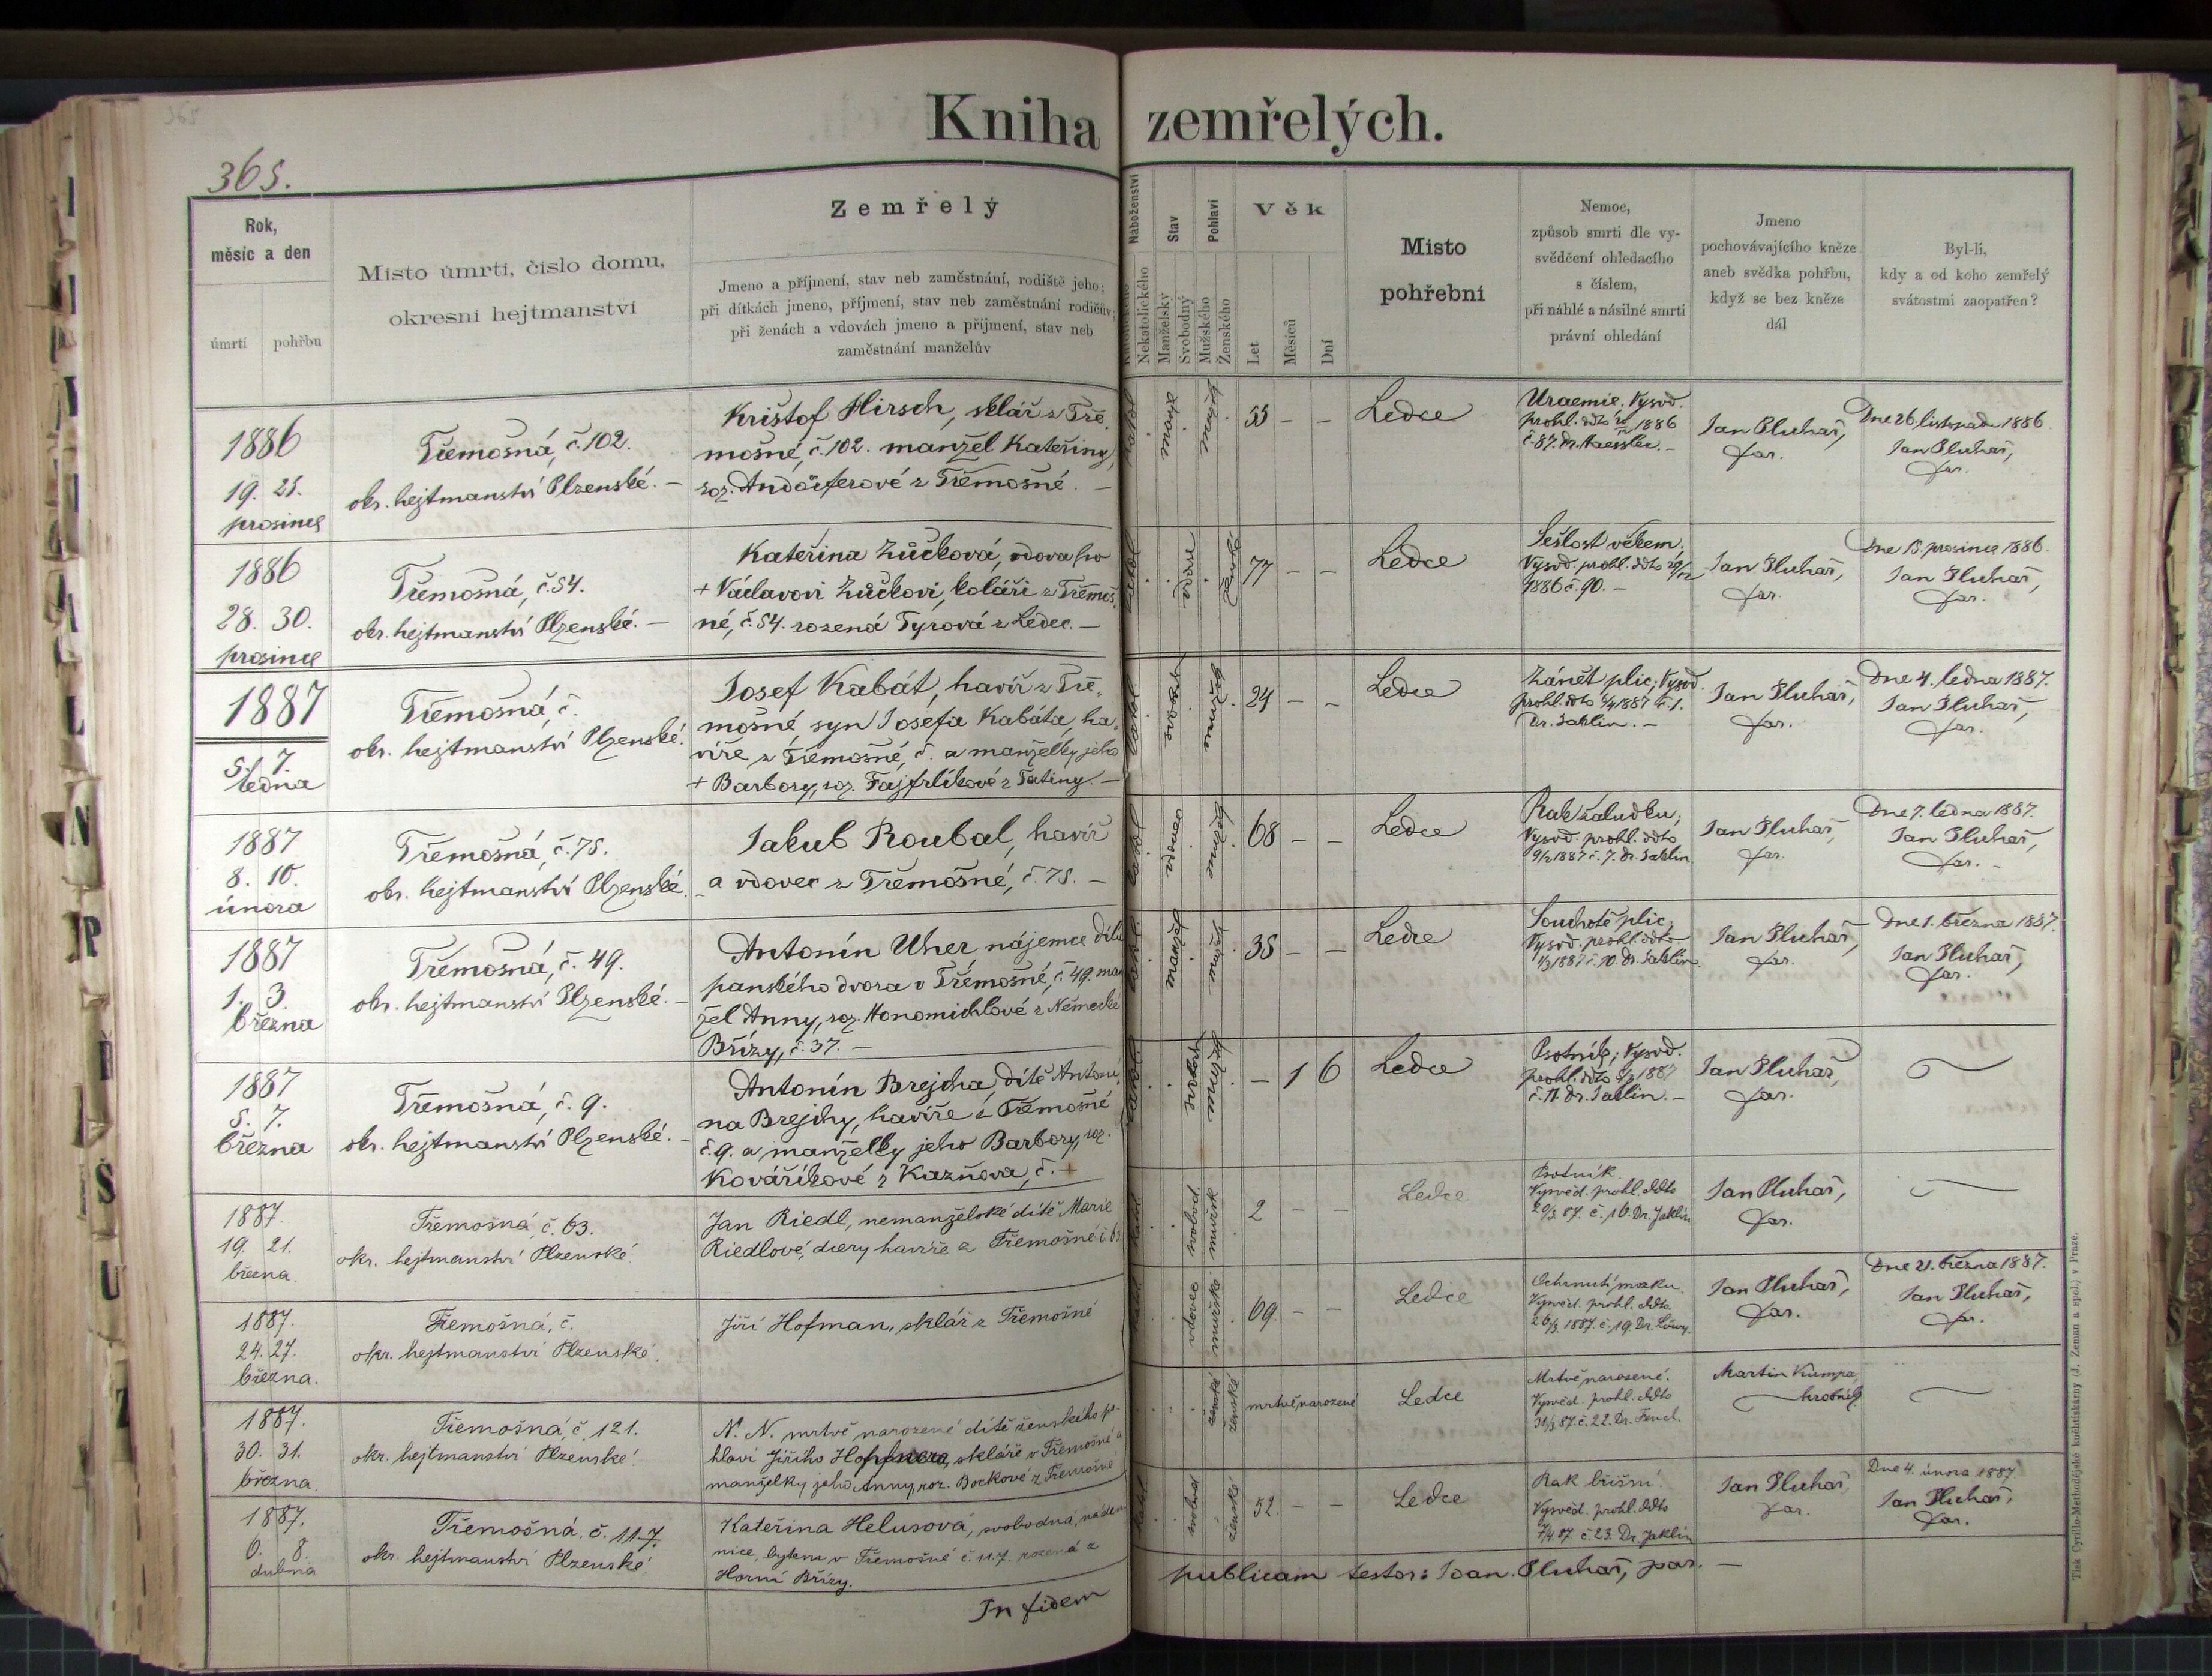 Kniha zemřelých.
365.
Rok,
měsíc a den
úmrtí pohřbu
Místo úmrtí, číslo domu,
okresní hejtmanství
Zemřelý
Jmeno a příjmení, stav neb zaměstnání, rodiště jeho;
při dítkách jmeno, příjmení, stav neb zaměstnání rodičův;
při ženách a vdovách jmeno a příjmení, stav neb
zaměstnání manželův
Náboženství
Nekatolického
Stav
Manželský
Svobodný
Pohlaví
Mužského
Ženského
Věk
Let
Měsíců
Dní
Místo
pohřební
Nemoc,
způsob smrti dle vy-
svědčení ohledacího
s číslem,
při náhlé a násilné smrti
právní ohledání
Jmeno
pochovávajícího kněze
aneb svědka pohřbu,
když se bez kněze
dál
Byl-li,
kdy a od koho zemřelý
svátostmi zaopatřen?
1886
19. 21.
prosince
Třemošná, č. 102.
okr. hejtmanství Plzenské. –
Krištof Hirsch, sklář z Tře-
mošné, č. 102. manžel Kateřiny,
roz. Andörferové z Třemošné. –
55 – –
Ledce
Uraemie. Vysvd.
prohl. ddto 1886
č. 87. Dr.
Jan Pluhař,
far.
Dne 26. listopadu 1886
Jan Pluhař,
far.
1886
28. 30.
prosince
Třemošná, č. 54.
okr. hejtmanství Plzenské. –
Kateřina Žůčková, vdova po
+ Václavovi Žůčkovi, koláři z Třemoš-
né, č. 54. rozená Týrová z Ledec. –
77 – –
Ledce
Sešlost věkem;
Vysvd. prohl. ddto 29/12
1886 č. 90. –
Jan Pluhař,
far.
Dne 15. prosince 1886.
Jan Pluhař,
far.
1887
5. 7.
ledna
Třemošná, č.
okr. hejtmanství Plzenské.
Josef Kabát, havíř z Tře-
mošné, syn Josefa Kabáta, ha-
víře z Třemošné, č. a manželky jeho
+ Barbory, roz. Fajfrlíkové z Tatiny. –
24 – –
Ledce
Zánět plic; Vysvd.
prohl. ddto 6/1 1887 č. 1.
Dr. Jaklin. –
Jan Pluhař,
far.
Dne 4. ledna 1887.
Jan Pluhař,
far.
1887
8. 10.
února
Třemošná, č. 75.
okr. hejtmanství Plzenské.
Jakub Roubal, havíř
a vdovec z Třemošné, č. 75. –
68 – –
Ledce
Rak žaludku;
Vysvd. prohl. ddto
9/2 1887 č. 7. Dr. Jaklin.
Jan Pluhař,
far.
Dne 7. ledna 1887.
Jan Pluhař,
far. –
1887
1. 3.
března
Třemošná, č. 49.
okr. hejtmanství Plzenské. –
Antonín Uher, nájemce dílu
panského dvora v Třemošné, č. 49. man-
žel Anny, roz. Honomichlové z Německé
Břízy, č. 37. –
35 – –
Ledce
Souchotě plic;
Vysvd. prohl. ddto
1/3 1887 č. 10. Dr. Jaklin.
Jan Pluhař,
far.
Dne 1. března 1887.
Jan Pluhař,
far.
1887
5. 7.
března
Třemošná, č. 9.
okr. hejtmanství Plzenské. –
Antonín Brejcha, dítě Antoní-
na Brejchy, havíře z Třemošné
č. 9. a manželky jeho Barbory, roz.
Kovaříkové z Kazňova, č. –
– 1 6
Ledce
Psotník; Vysvd.
prohl. ddto 5/3 1887
č. 11. Dr. Jaklin. –
Jan Pluhař,
far.
1887.
19. 21.
března.
Třemošná, č. 63.
okr. hejtmanství Plzenské.
Jan Riedl, nemanželské dítě Marie
Riedlové, dcery havíře z Třemošné č. 63
svobod. mužsk.
2 – –
Ledce
Psotník.
Vysvěd. prohl. ddto
20/3 87. č. 16. Dr. Jaklin
Jan Pluhař,
far.
1887.
24. 27.
března.
Třemošná, č.
okr. hejtmanství Plzenské.
Jiří Hofman, sklář z Třemošné
vdovec mužské
69. – –
Ledce
Ochrnutí mozku.
Vysvěd. prohl. ddto.
26/3 1887. č. 19. Dr. Löwy.
Jan Pluhař,
far.
Dne 21. března 1887.
Jan Pluhař,
far.
1887.
30. 31.
března.
Třemošná, č. 121.
okr. hejtmanství Plzenské.
N. N. mrtvě narozené dítě ženského po-
hlaví Jiřího skláře v Třemošné a
manželky jeho Anny, roz. Bockové z Třemošné
ženské
mrtvě narozené
Ledce
Mrtvě narozené.
Vysvěd. prohl. ddto
31/3 87. č. 22. Dr.
Martin Kumpa,
hrobník
1887.
6. 8.
dubna
Třemošná, č. 117.
okr. hejtmanství Plzenské.
Kateřina Helusová, svobodná, náden-
nice, bytem v Třemošné č. 117. rozená z
Horní Břízy.
svobod ženské
52. – –
Ledce
Rak břišní.
Vysvěd. prohl. ddto
7/4 87. č. 23. Dr. Jaklin
Jan Pluhař,
far.
Dne 4. února 1887.
Jan Pluhař,
far.
In fidem publicam testor: Joan. Pluhař, par. –
Tisk Cyrillo-Methodějské knihtiskárny (J. Zeman a spol.) v Praze.